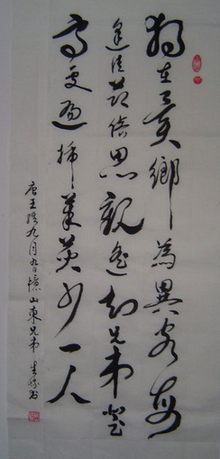 独在异乡为異客每
逢佳节倍思親遥知兄弟登
高处遍插茱萸少一人
唐王维九月九日憶山東兄弟